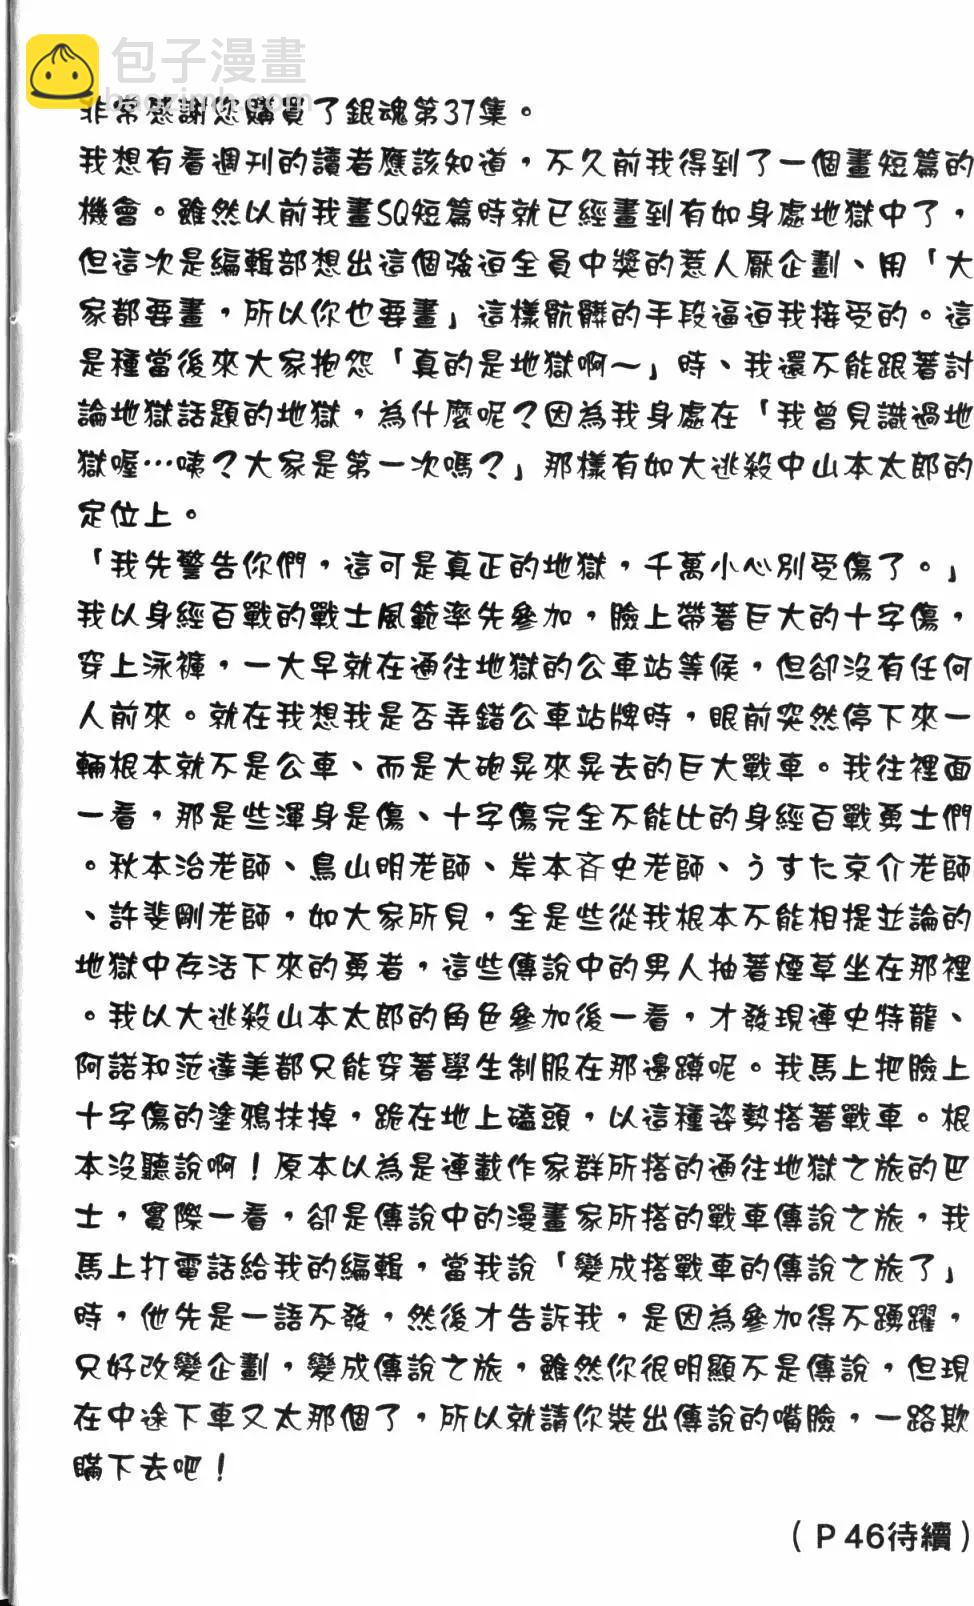 包子漫畫
baozimh.com
非常感謝您購買了銀魂第37集。
我想有看週刊的讀者應該知道，不久前我得到了一個畫短篇的
機會。雖然以前我畫SQ短篇時就已經畫到有如身處地獄中了，
但這次是編輯部想出這個強迫全員中獎的惹人厭企劃、用「大
家都要畫，所以你也要畫」這樣骯髒的手段逼迫我接受的。這
是種當後來大家抱怨「真的是地獄啊～」時、我還不能跟著討
論地獄話題的地獄，為什麼呢？因為我身處在「我曾見識過地
獄喔…咦？大家是第一次嗎？」那樣有如大逃殺中山本太郎的
定位上。
「我先警告你們，這可是真正的地獄，千萬小心別受傷了。」
我以身經百戰的戰士風範率先參加，臉上帶著巨大的十字傷，
穿上泳褲，一大早就在通往地獄的公車站等候，但卻沒有任何
人前來。就在我想我是否弄錯公車站牌時，眼前突然停下來一
輛根本就不是公車、而是大砲晃來晃去的巨大戰車。我往裡面
一看，那是些渾身是傷、十字傷完全不能比的身經百戰勇士們
。秋本治老師、鳥山明老師、岸本斉史老師、うすた京介老師
、許斐剛老師，如大家所見，全是些從我根本不能相提並論的
地獄中存活下來的勇者，這些傳說中的男人抽著煙草坐在那裡
。我以大逃殺山本太郎的角色參加後一看，才發現連史特龍、
阿諾和范達美都只能穿著學生制服在那邊蹲呢。我馬上把臉上
十字傷的塗鴉抹掉，跪在地上磕頭，以這種姿勢搭著戰車。根
本沒聽說啊！原本以為是連載作家群所搭的通往地獄之旅的巴
士，實際一看，卻是傳說中的漫畫家所搭的戰車傳說之旅，我
馬上打電話給我的編輯，當我說「變成搭戰車的傳說之旅了」
時，他先是一語不發，然後才告訴我，是因為參加得不踴躍，
只好改變企劃，變成傳說之旅，雖然你很明顯不是傳說，但現
在中途下車又太那個了，所以就請你裝出傳說的嘴臉，一路欺
瞞下去吧！
（P46待續）